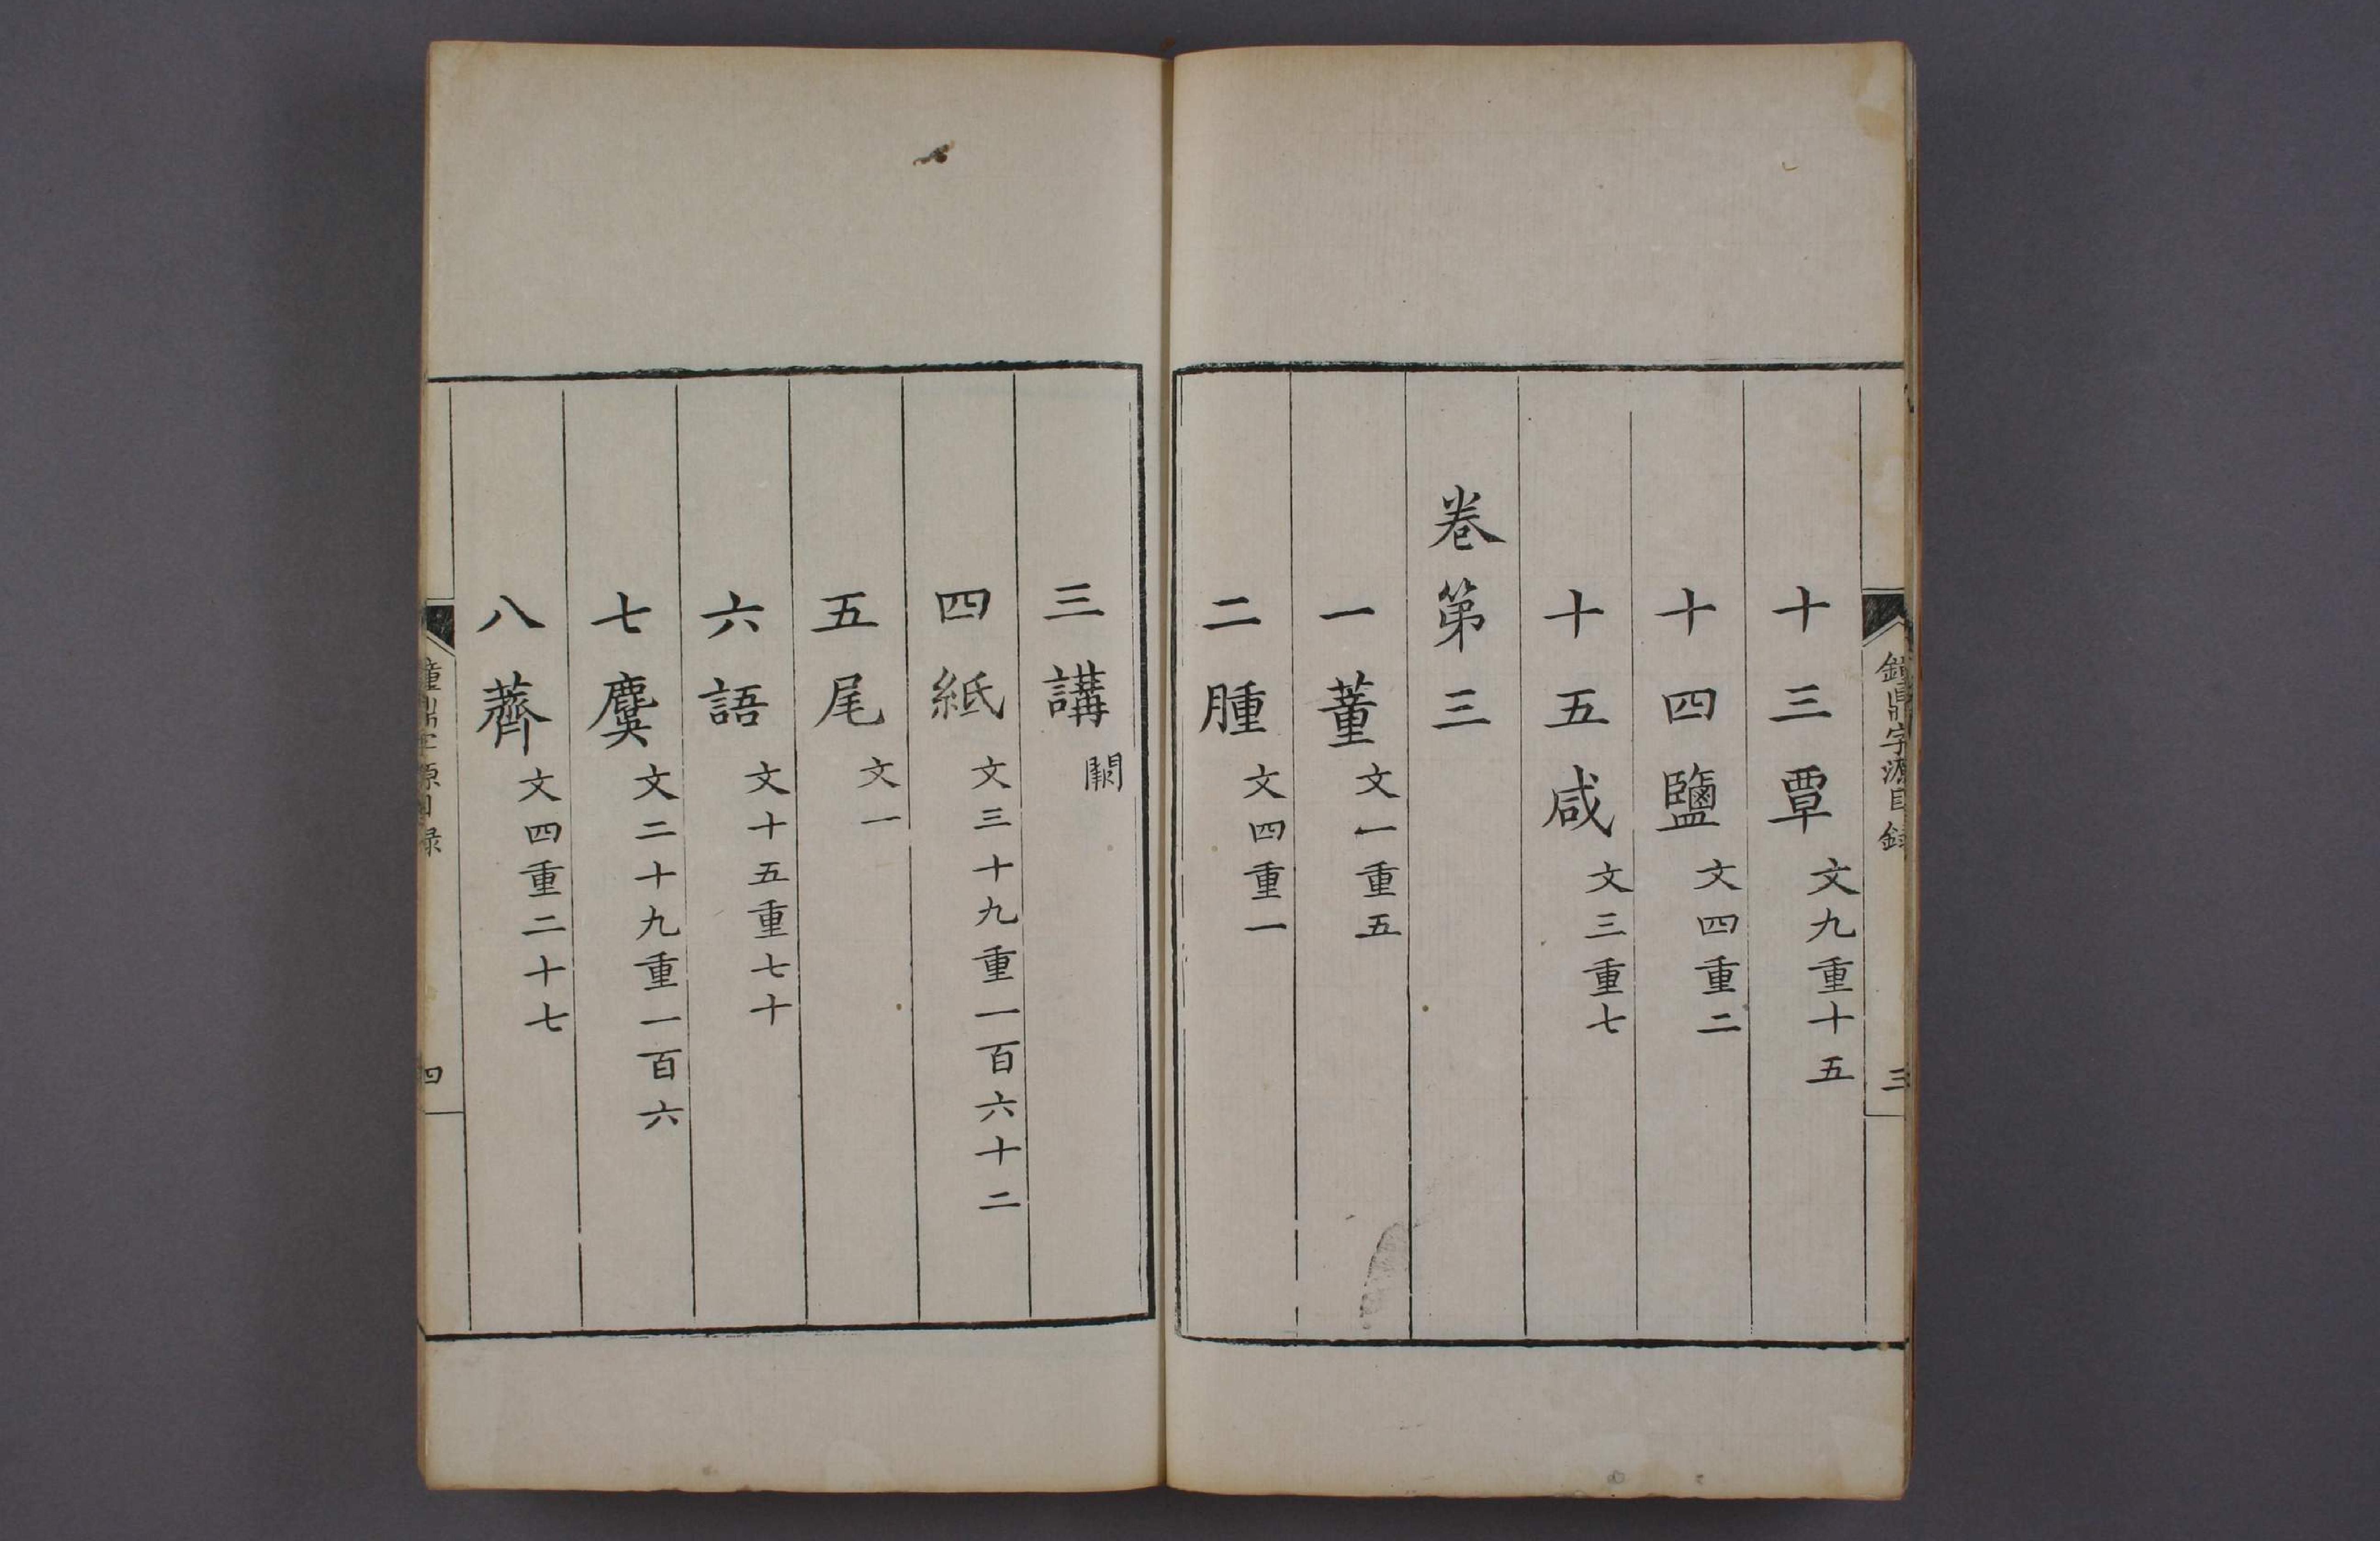 鐘鼎字源目錄
三
十三覃文九重十五
十四鹽文四重二
十五咸文三重七
卷第三
一董文一重五
二腫文四重一
三講闕
四紙文三十九重一百六十二
五尾文一
六語文十五重七十
七麌文二十九重一百六
八薺文四重二十七
鐘鼎字源目錄
四